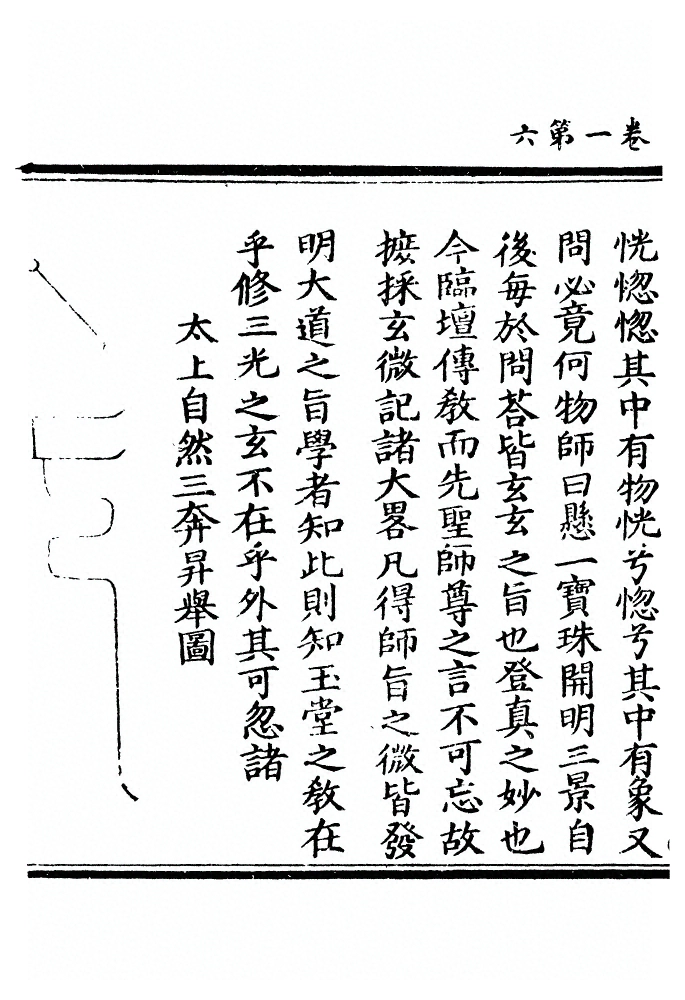 卷一第六
恍惚惚其中有物恍兮惚兮其中有象又
問必竟何物師曰懸一寶珠開明三景自
後每於問荅皆玄玄之旨也登真之妙也
今臨壇傳教而先聖師尊之言不可忘故
摭採玄微記諸大畧凡得師旨之微皆發
明大道之旨學者知此則知玉堂之教在
乎修三光之玄不在乎外其可忽諸
太上自然三奔昇舉圖